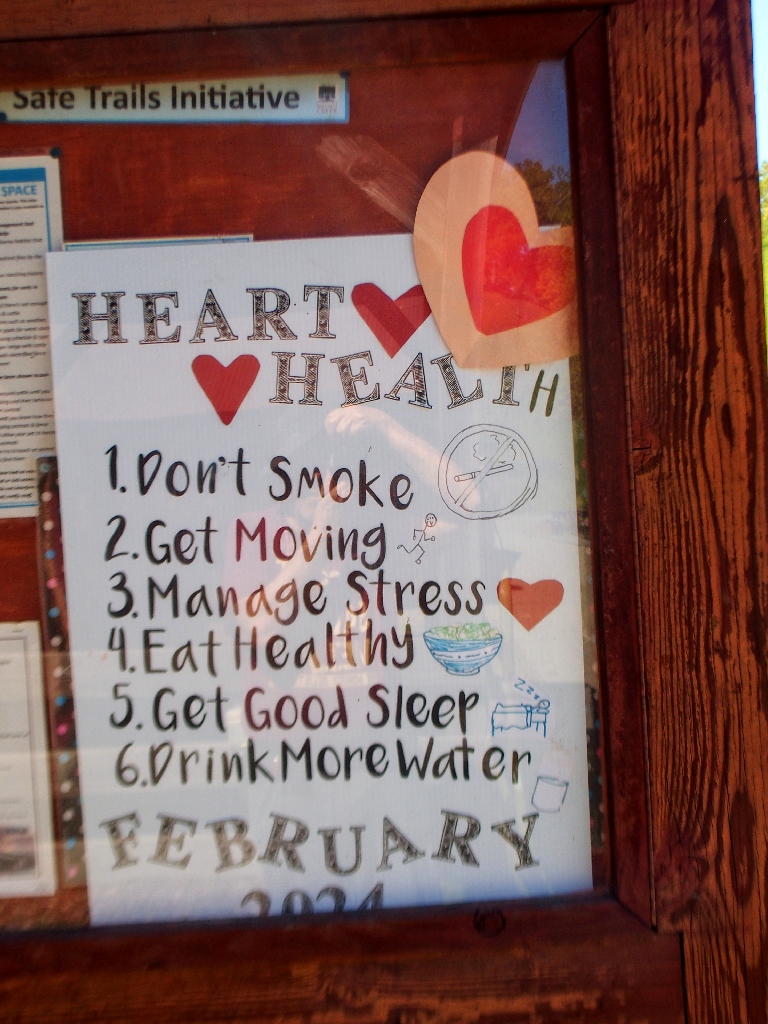 Safe Trails Initiative
SPACE
HEART
HEALTH
1. Don't Smoke
2. Get Moving
3. Manage Stress
4. Eat Healthy
5. Get Good Sleep
zzz
6. Drink More Water
FEBRUARY
2024